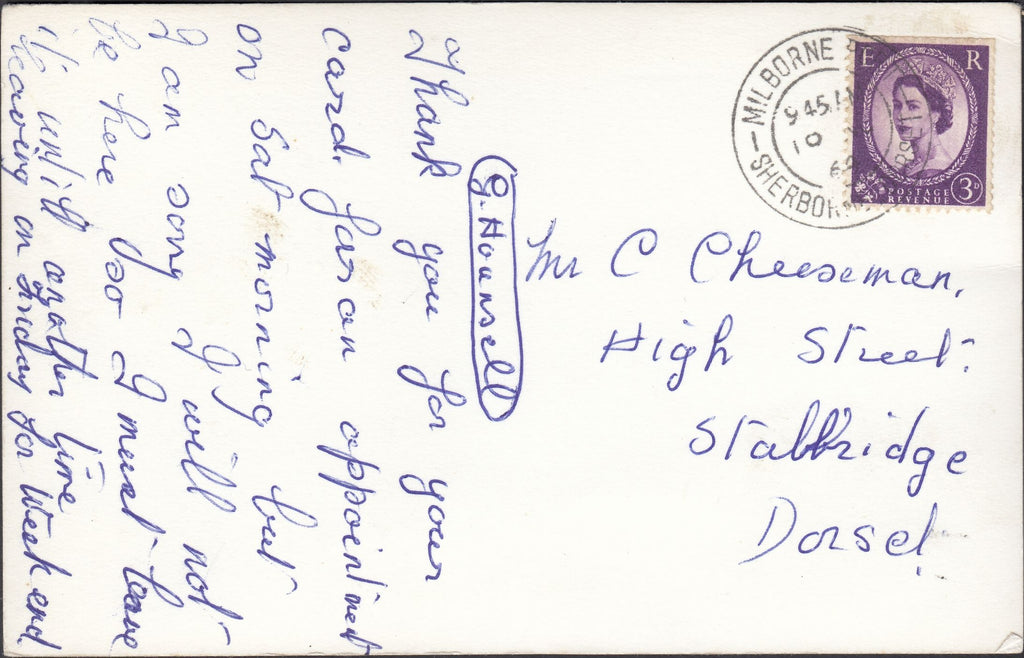 Thank you for your
card for an appointment
on Sat morning but
I am sorry I will not
be here so I must leave
it until another time
leaving on Friday for Week end
G. Hounsell
Mr C Cheeseman,
High Street
Stalbridge
Dorset
MILBORNE
SHERBORNE
9 45 AM
E R
POSTAGE
REVENUE
3D